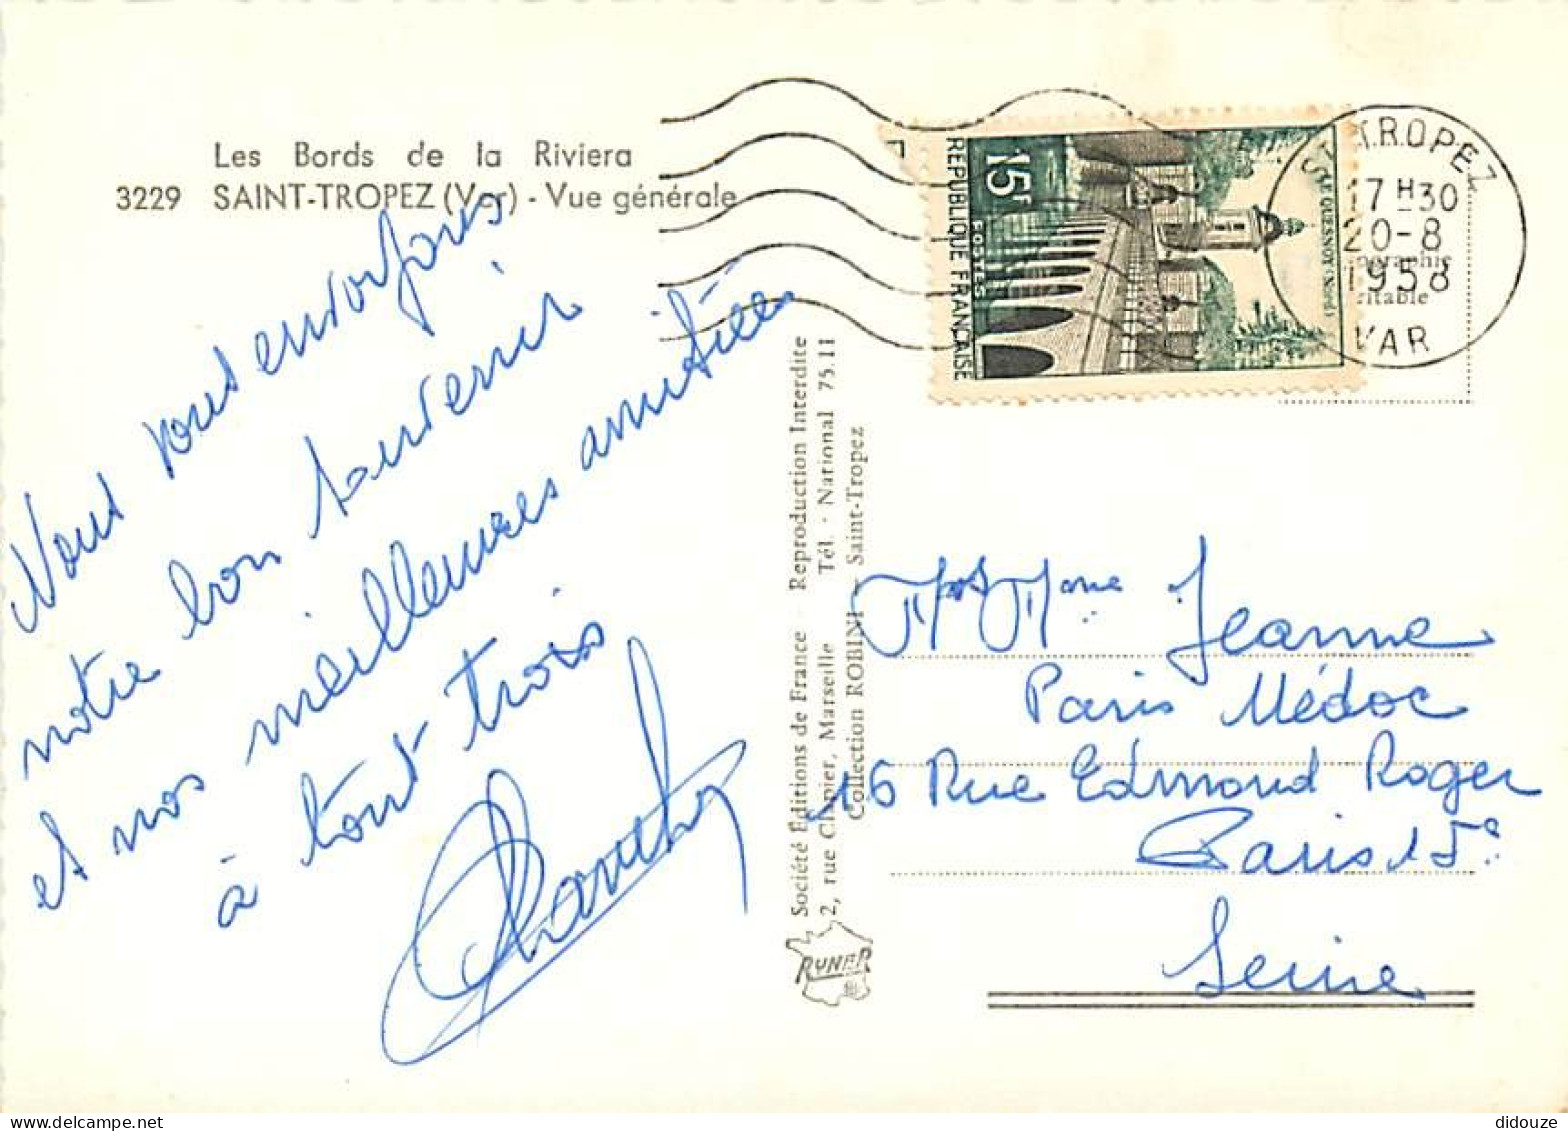 Les Bords de la Riviera
3229 SAINT-TROPEZ (Var) - Vue générale
Nous vous envoyons
notre bon souvenir
et nos meilleures amitiés
à tout trois
Société Éditions de France - Reproduction Interdite
2, rue Clapier, Marseille Tél. - National 75.11
Collection ROBINI - Saint-Tropez
RUNER
15F
POSTES
REPUBLIQUE FRANÇAISE
LE QUESNOY (Nord)
ST TROPEZ
17 H 30
20-8
1958
VAR
ographie
ritable
Jeanne
Paris Médoc
16 Rue Edmond Roger
Paris 15e
Seine
didouze